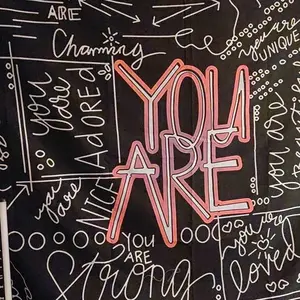 ARE
Charming
you are
UNIQUE
YOU
ARE
you are
ADORED
you are
NICE
you are
YOU
ARE
Strong
you are
loved